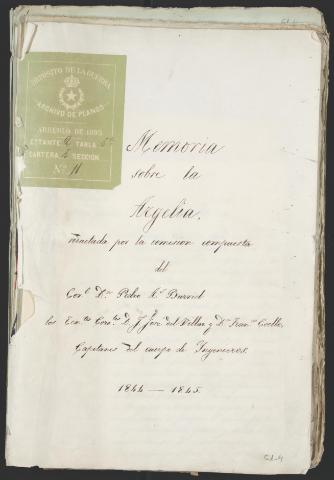 DEPÓSITO DE LA GUERRA
ARCHIVO DE PLANOS
ARREGLO DE 1893
ETTANTE 9 TABLA 5ª
CARTERA 2 SECCIÓN
Nº 11
Memoria
sobre la
Argelia,
redactada por la comision compuesta
del
Conl. Dn. Pedro
los Ten.tes Coro.les D. J. José del Villar y Dn. Franco. Coello,
Capitanes del cuerpo de Yngenieros.
1844 — 1845.